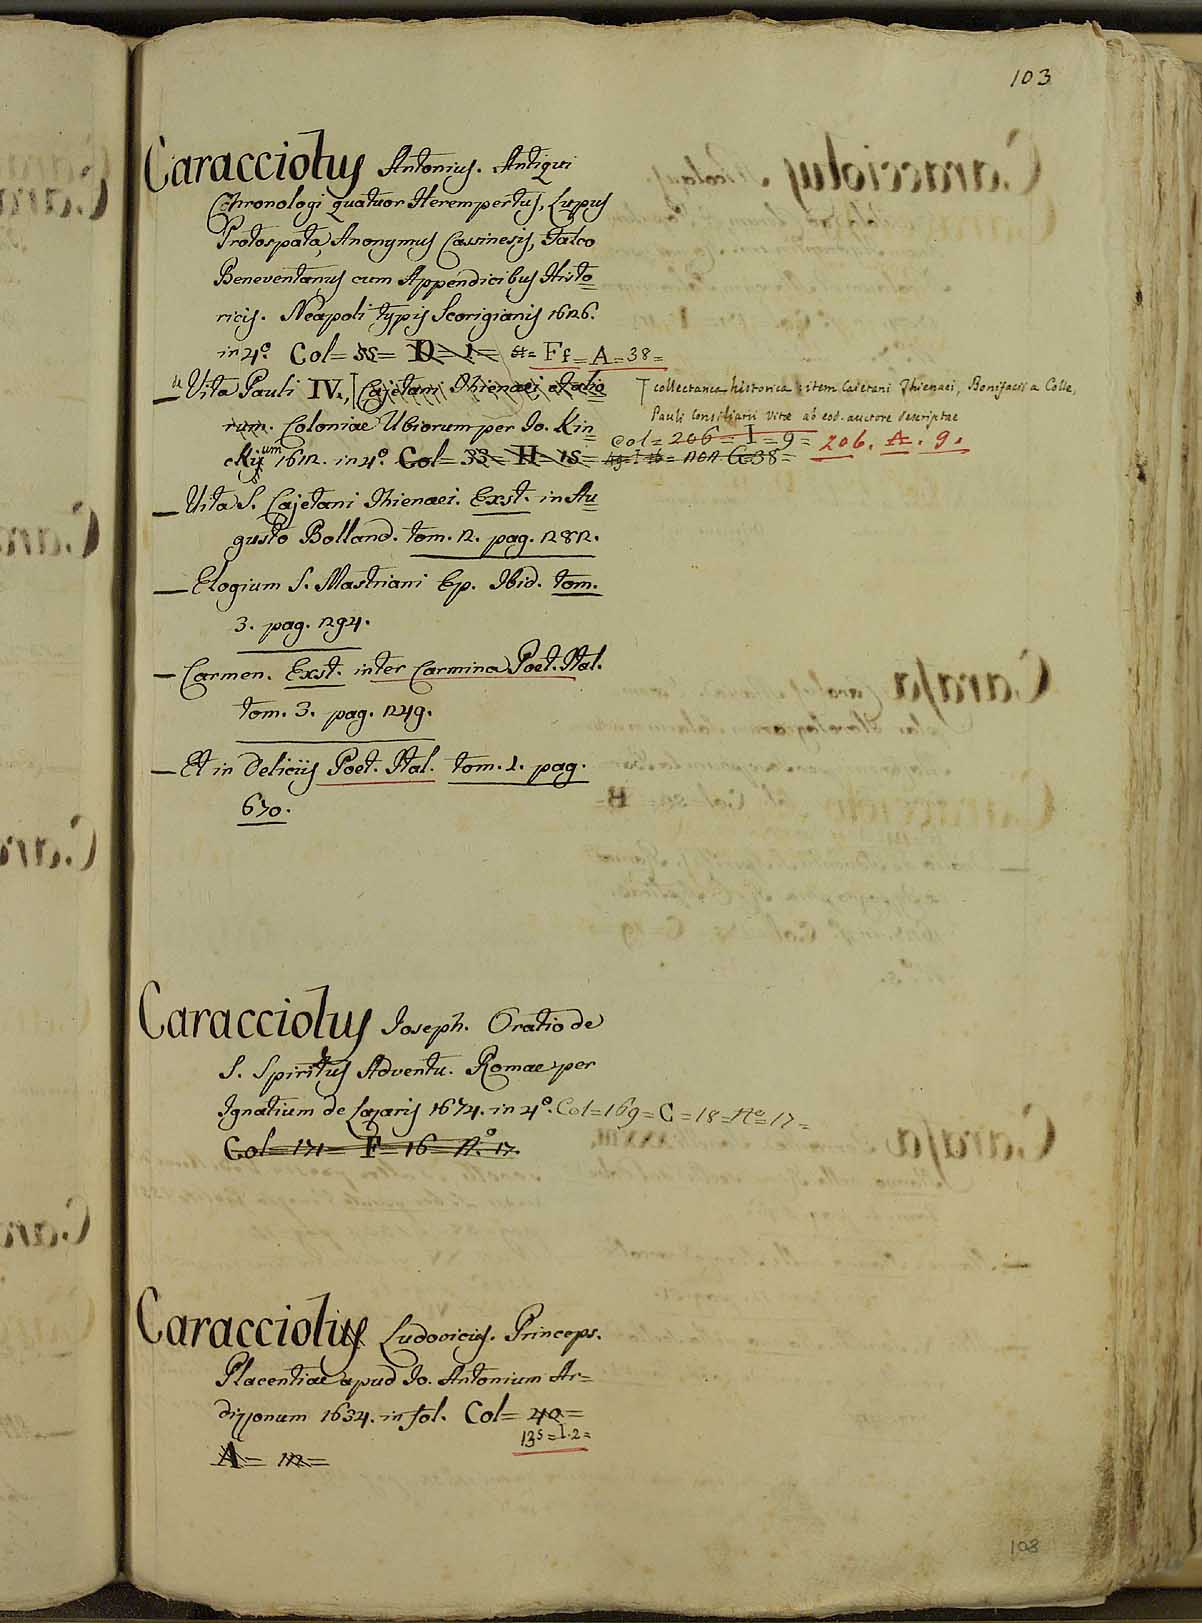 103
Caracciolus Antonius. Antiqui
Chronologi quatuor Herempertus, Lupus
Protospata, Anonymus Cassinesis, Falco
Beneventanus cum Appendicibus Histo=
ricis. Neapoli typis Scorigianis 1626.
in 4.º Col= 55= D= 1= Ff= A=38=
— Vita Pauli IV., Cajetani Thienaei etalio
collectanea historica: item Caietani Thienaei, Bonifacii a Colle,
Pauli Consiliarii vitæ ab eod. auctore descriptae
rum. Coloniae Ubiorum per Jo. Kin=
Col= 206= I= 9= 206. A. 9.
ckium 1612. in 4.º Col= 33= H= 15= G=38=
— Vita S. Cajetani Thienaei. Exst. in Au=
gusto Bolland. tom. 2. pag. 282.
— Elogium S. Mastriani Ep. Ibid. tom.
3. pag. 294.
— Carmen. Exst. inter Carmina Poet. Ital.
tom. 3. pag. 249.
— Et in Deliciis Poet. Ital. tom. 1. pag.
670.
Caracciolus Joseph. Oratio de
S. Spiritus Adventu. Romae per
Ignatium de Lazaris 1674. in 4.º Col=169=C=18=Nº=17=
Col=171= F=16=N.º 17.
Caracciolus Ludovicus. Princeps.
Placentiae apud Jo. Antonium Ar=
dizzonum 1634. in fol. Col= 40=
135=I.2=
A= 12=
103